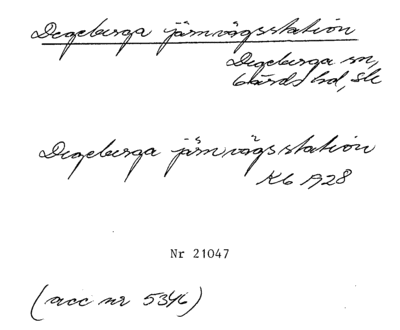 Degeberga järnvägsstation
Degeberga sn,
Gärds hd, Sk
Degeberga järnvägsstation
Kb 1928
Nr 21047
(acc nr 5346)